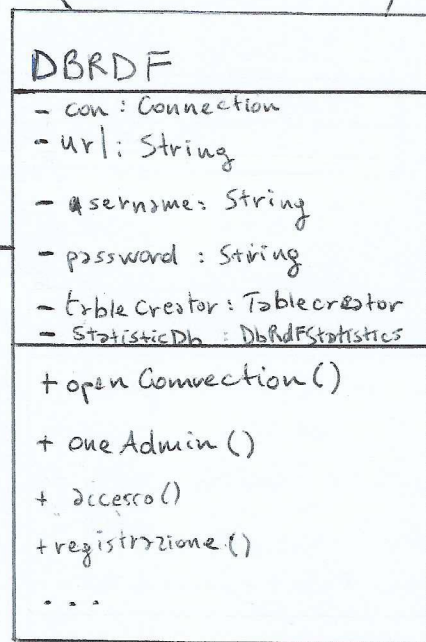 DBRDF
- con : Connection
- url : String
- username : String
- password : String
- tableCreator : Tablecreator
- StatisticDb : DbRdFStatistics
+ openConnection()
+ oneAdmin()
+ accesso()
+ registrazione()
...